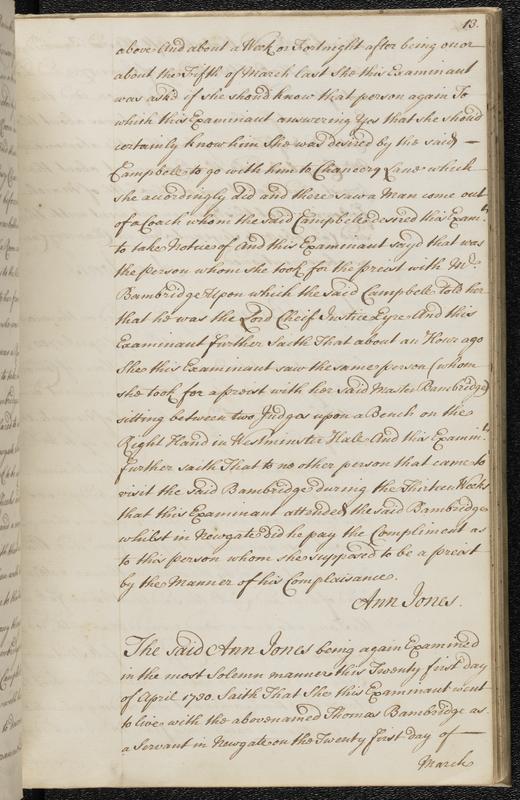 13.
above And about a Week or Fortnight after being on or
about the Fifth of March last She this Examinant
was asked if she should know that person again To
which this Examinant answering Yes that she should
certainly know him She was desired by the said
Campbell to go with him to Chancery Lane which
she accordingly did and there saw a Man come out
of a Coach whom the said Campbell desired this Exam.t
to take Notice of And this Examinant sayd that was
the person whom she took for the preist with Mr.
Bambridge Upon which the said Campbell told her
that he was the Lord Cheif Justice Eyre And this
Examinant further Saith That about an Hour ago
She this Examinant saw the same person (whom
she took for a preist with her said Master Bambridge)
sitting between two Judges upon a Bench on the
Right Hand in Westminster Hall And this Examin.t
further saith That to no other person that came to
visit the said Bambridge during the Thirteen Weeks
that this Examinant attended the said Bambridge
whilst in Newgate did he pay the Compliment as
to this person whom she supposed to be a preist
by the Manner of his Complaisance.
Ann Jones.
The said Ann Jones being again Examined
in the most Solemn manner this Twenty first day
of April 1730. Saith That She this Examinant went
to live with the abovenamed Thomas Bambridge as
a Servant in Newgate on the Twenty first day of
March